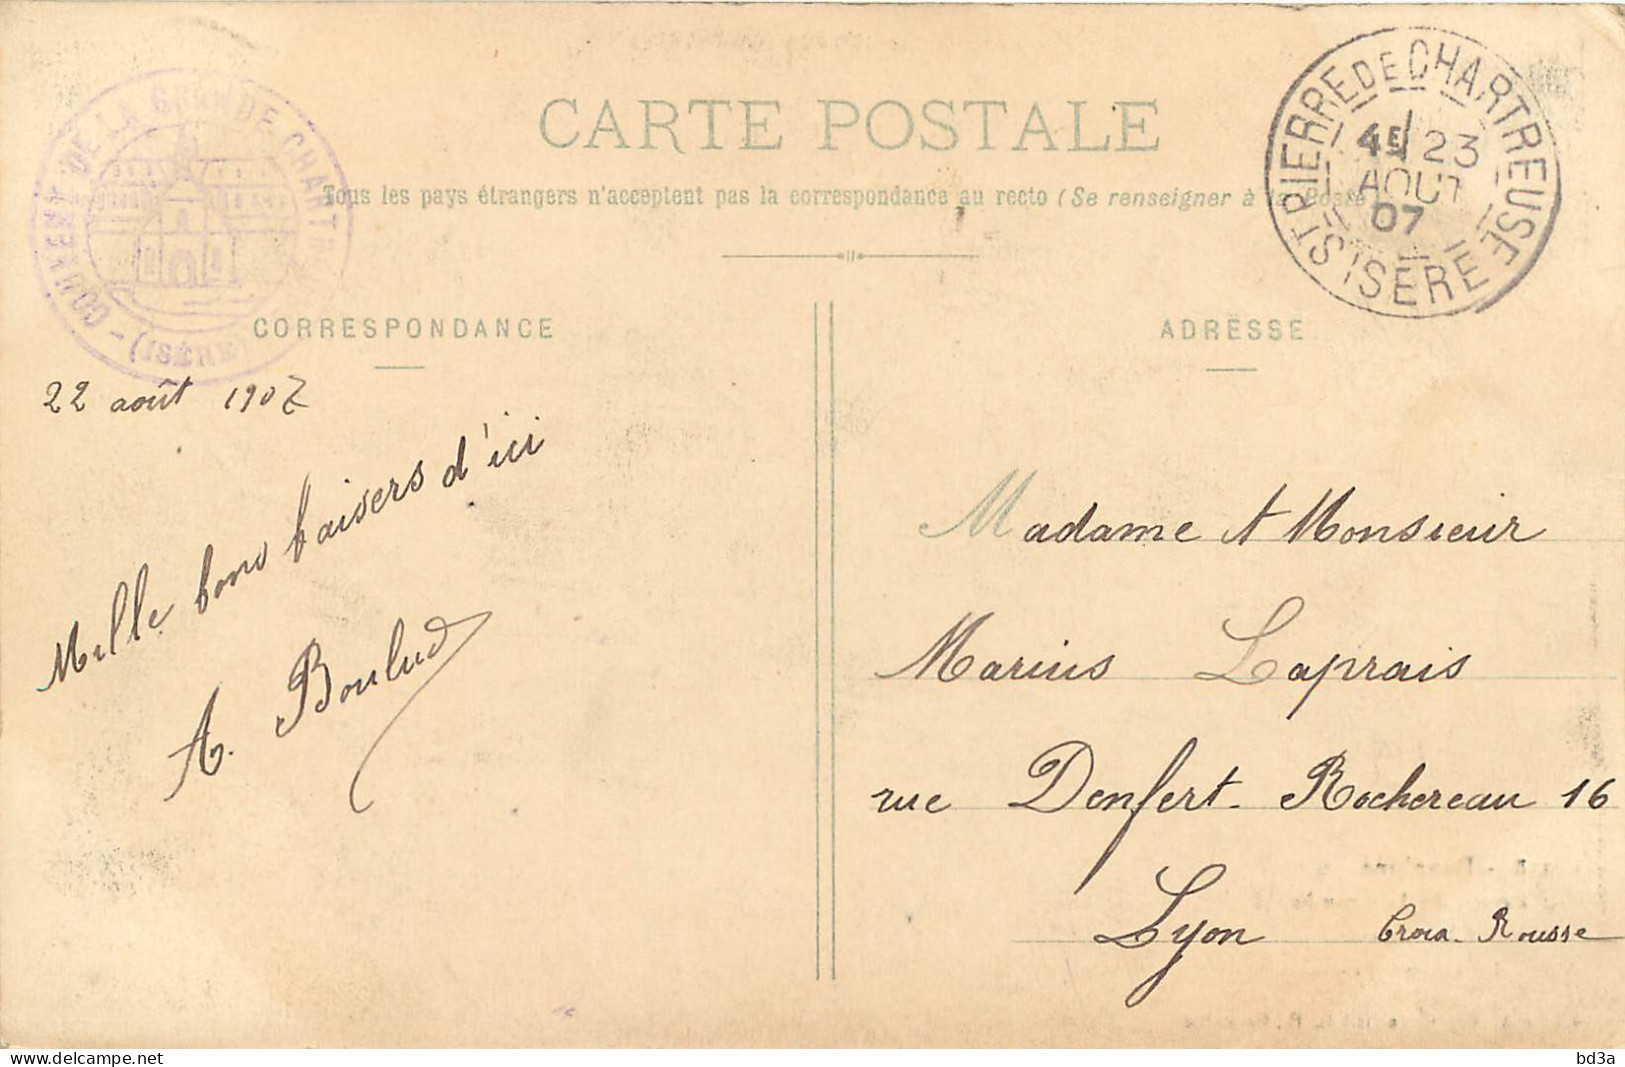 COUVENT DE LA GRANDE CHARTR
- (ISÈRE)
CARTE POSTALE
Tous les pays étrangers n'acceptent pas la correspondance au recto (Se renseigner à la Poste)
ST PIERRE DE CHARTREUSE
4E 23
AOUT
07
ISERE
CORRESPONDANCE
22 août 1907
Mille bons baisers d'ici
A. Boulud
ADRESSE
Madame et Monsieur
Marius Laprais
rue Denfert-Rochereau 16
Lyon Croix-Rousse
delcampe.net
bd3a